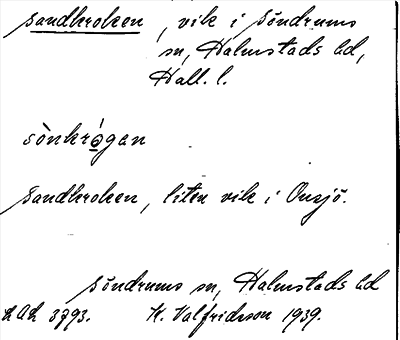 Sandkroken, vik i Söndrums
sn, Halmstads hd,
Hall. l.
sònkrógan
Sandkroken, liten vik i Onsjö.
Söndrums sn, Halmstads hd
LAL 3793. K. Valfridsson 1939.